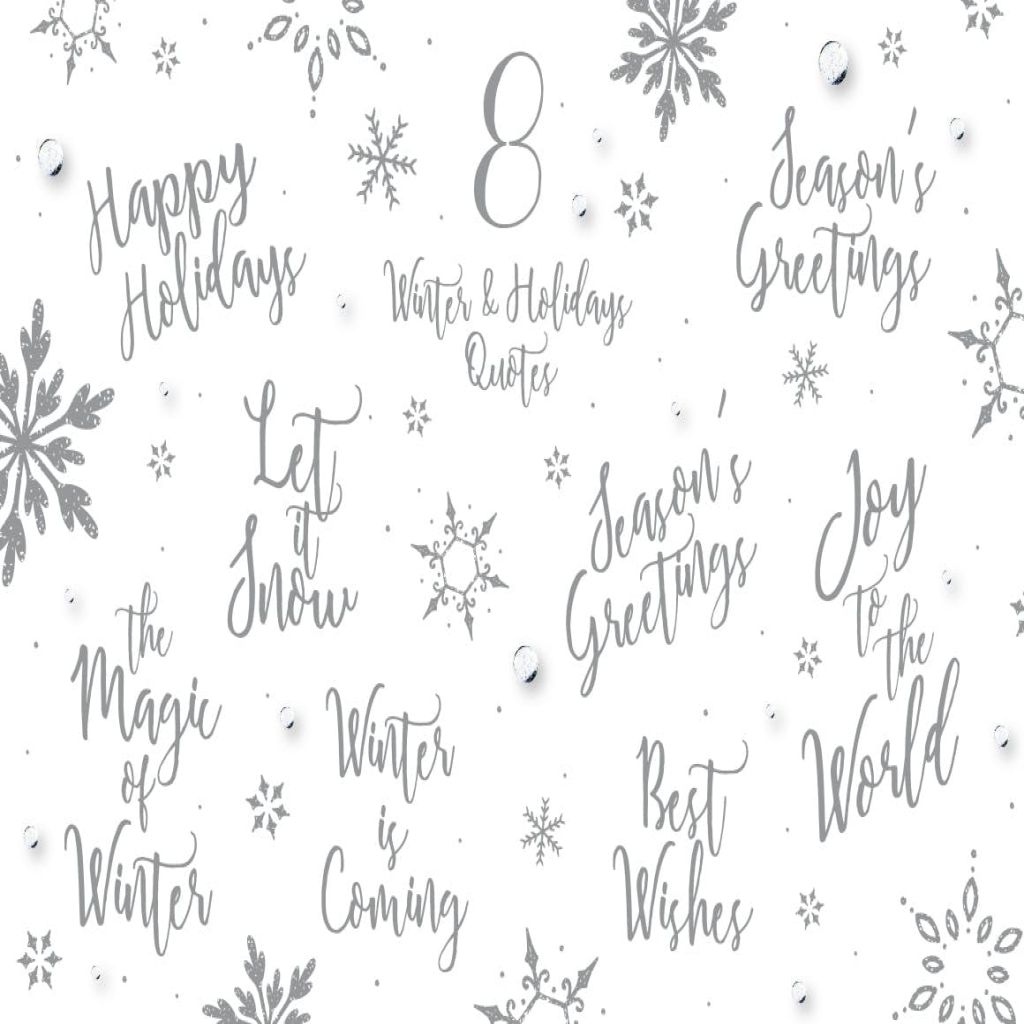 8
Winter & Holidays
Quotes
Happy
Holidays
Season's
Greetings
Let
it
Snow
Season's
Greeting's
Joy
to
the
World
the
Magic
of
Winter
Winter
is
Coming
Best
Wishes